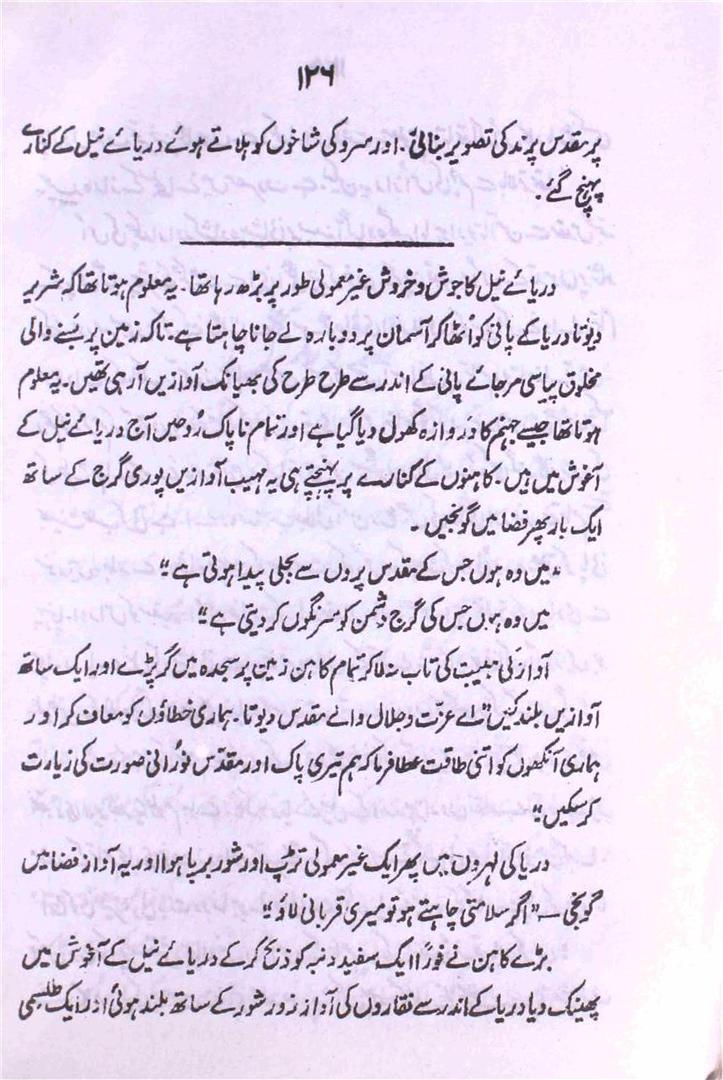 ۱۲۶
پر مقدس پرند کی تصویر بنائی۔ اور سرو کی شاخوں کو ہلاتے ہوئے دریائے نیل کے کنارے
پہنچ گئے۔
دریائے نیل کا جوش و خروش غیر معمولی طور پر بڑھ رہا تھا۔ یہ معلوم ہوتا تھا کہ شریر
دیوتا دریا کے پانی کو اٹھا کر آسمان پر دوبارہ لے جانا چاہتا ہے۔ تاکہ زمین پر بسنے والی
مخلوق پیاسی مر جائے پانی کے اندر سے طرح طرح کی بھیانک آوازیں آ رہی تھیں۔ یہ معلوم
ہوتا تھا جیسے جہنم کا دروازہ کھول دیا گیا ہے اور تمام ناپاک رُوحیں آج دریائے نیل کے
آغوش میں ہیں۔ کاہنوں کے کنارے پر پہنچتے ہی یہ مہیب آوازیں پوری گرج کے ساتھ
ایک بار پھر فضا میں گونجیں۔
"میں وہ ہوں جس کے مقدس پروں سے بجلی پیدا ہوتی ہے"
میں وہ ہوں جس کی گرج دشمن کو سرنگوں کر دیتی ہے"
آواز کی ہیبت کی تاب نہ لا کر تمام کاہن زمین پر سجدہ میں گر پڑے اور ایک ساتھ
آوازیں بلند کیں "اے عزّت و جلال والے مقدس دیوتا۔ ہماری خطاؤں کو معاف کر اور
ہماری آنکھوں کو اتنی طاقت عطا فرما کہ ہم تیری پاک اور مقدّس نورُانی صورت کی زیارت
کر سکیں"
دریا کی لہروں میں پھر ایک غیر معمولی تڑپ اور شور برپا ہوا اور یہ آواز فضا میں
گونجی — "اگر سلامتی چاہتے ہو تو میری قربانی لاؤ"
بڑے کاہن نے فورًا ایک سفید دنبہ کو ذبح کر کے دریائے نیل کے آغوش میں
پھینک دیا دریا کے اندر سے نقاروں کی آواز زور شور کے ساتھ بلند ہوئی اور ایک طلسمی